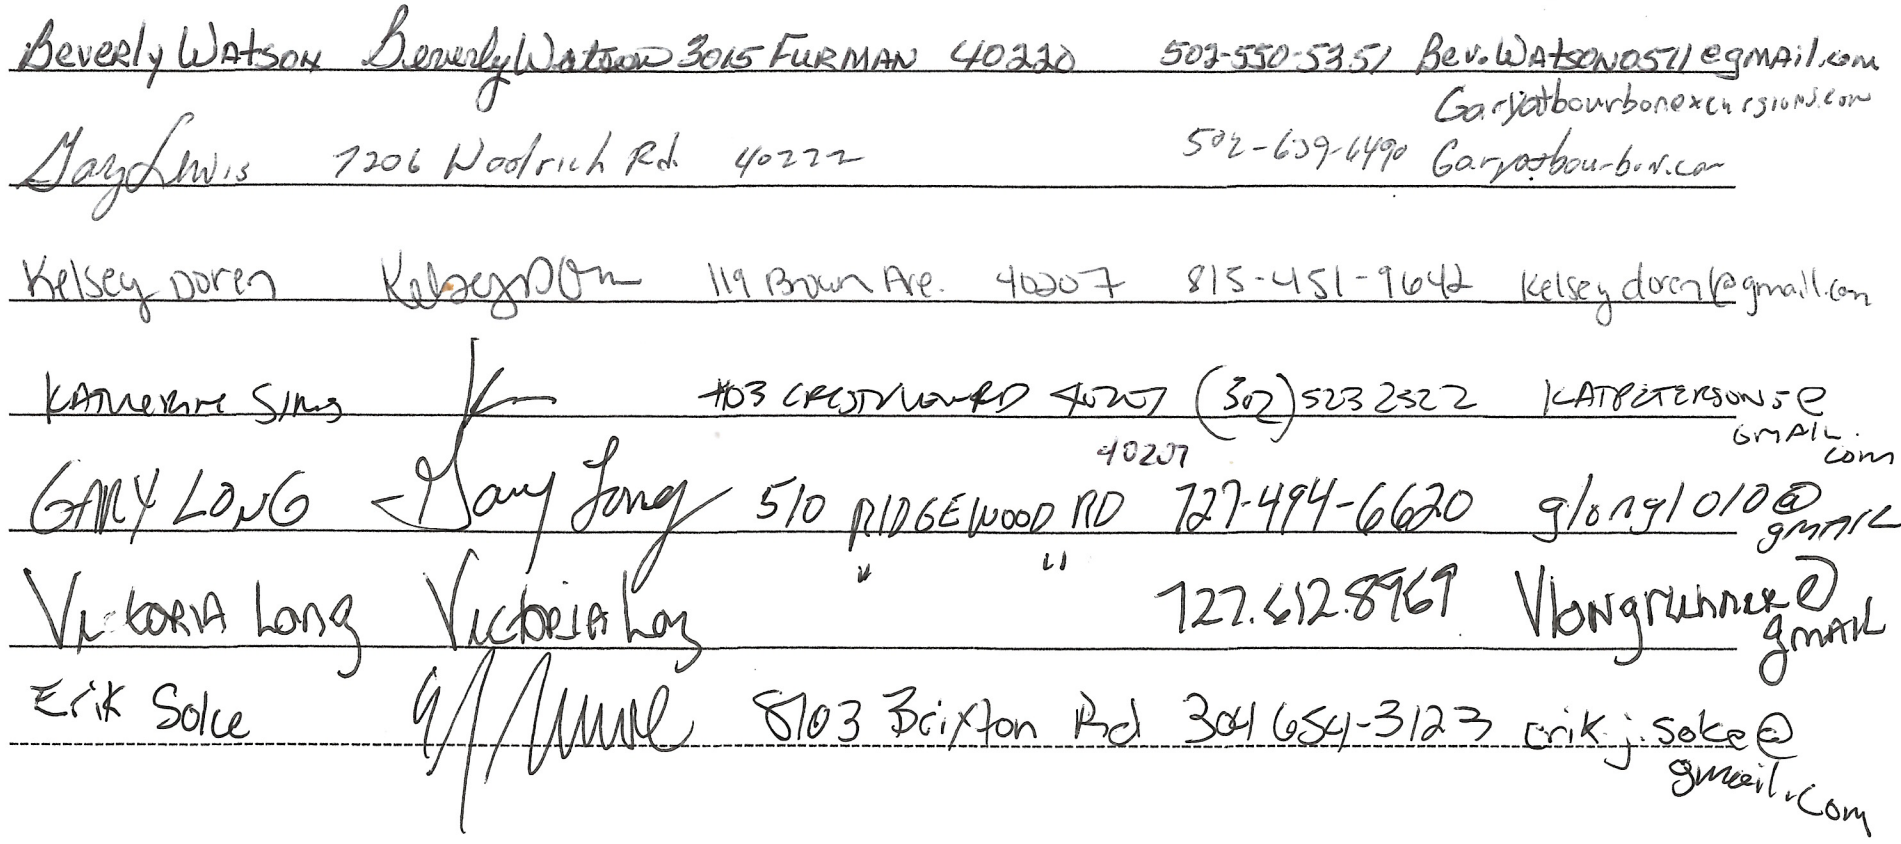 Beverly Watson Beverly Watson 3015 FURMAN 40220 502-550-5351 Bev.Watson0511@gmail.com
Garyatbourbonexcursions.com
Gary Lewis 7206 Woodrich Rd. 40222 502-639-6490 Garyatbourbon.com
Kelsey Doren Kelsey Doren 119 Brown Ave. 40207 815-451-9642 kelseydoren1@gmail.com
KATHERINE SIMS 403 CRESTMOOR RD 40207 (502) 523 2522 KATPETERSON5@
GMAIL.
com
40207
GARY LONG Gary Long 510 RIDGEWOOD RD 727-494-6620 glong1010@
gmail
VICTORIA Long VICTORIA Long " " 727.612.8969 Vlongrunner@
gmail
Erik Soke 8103 Brixton Rd 304 654-3123 erik.j.soke@
gmail.com